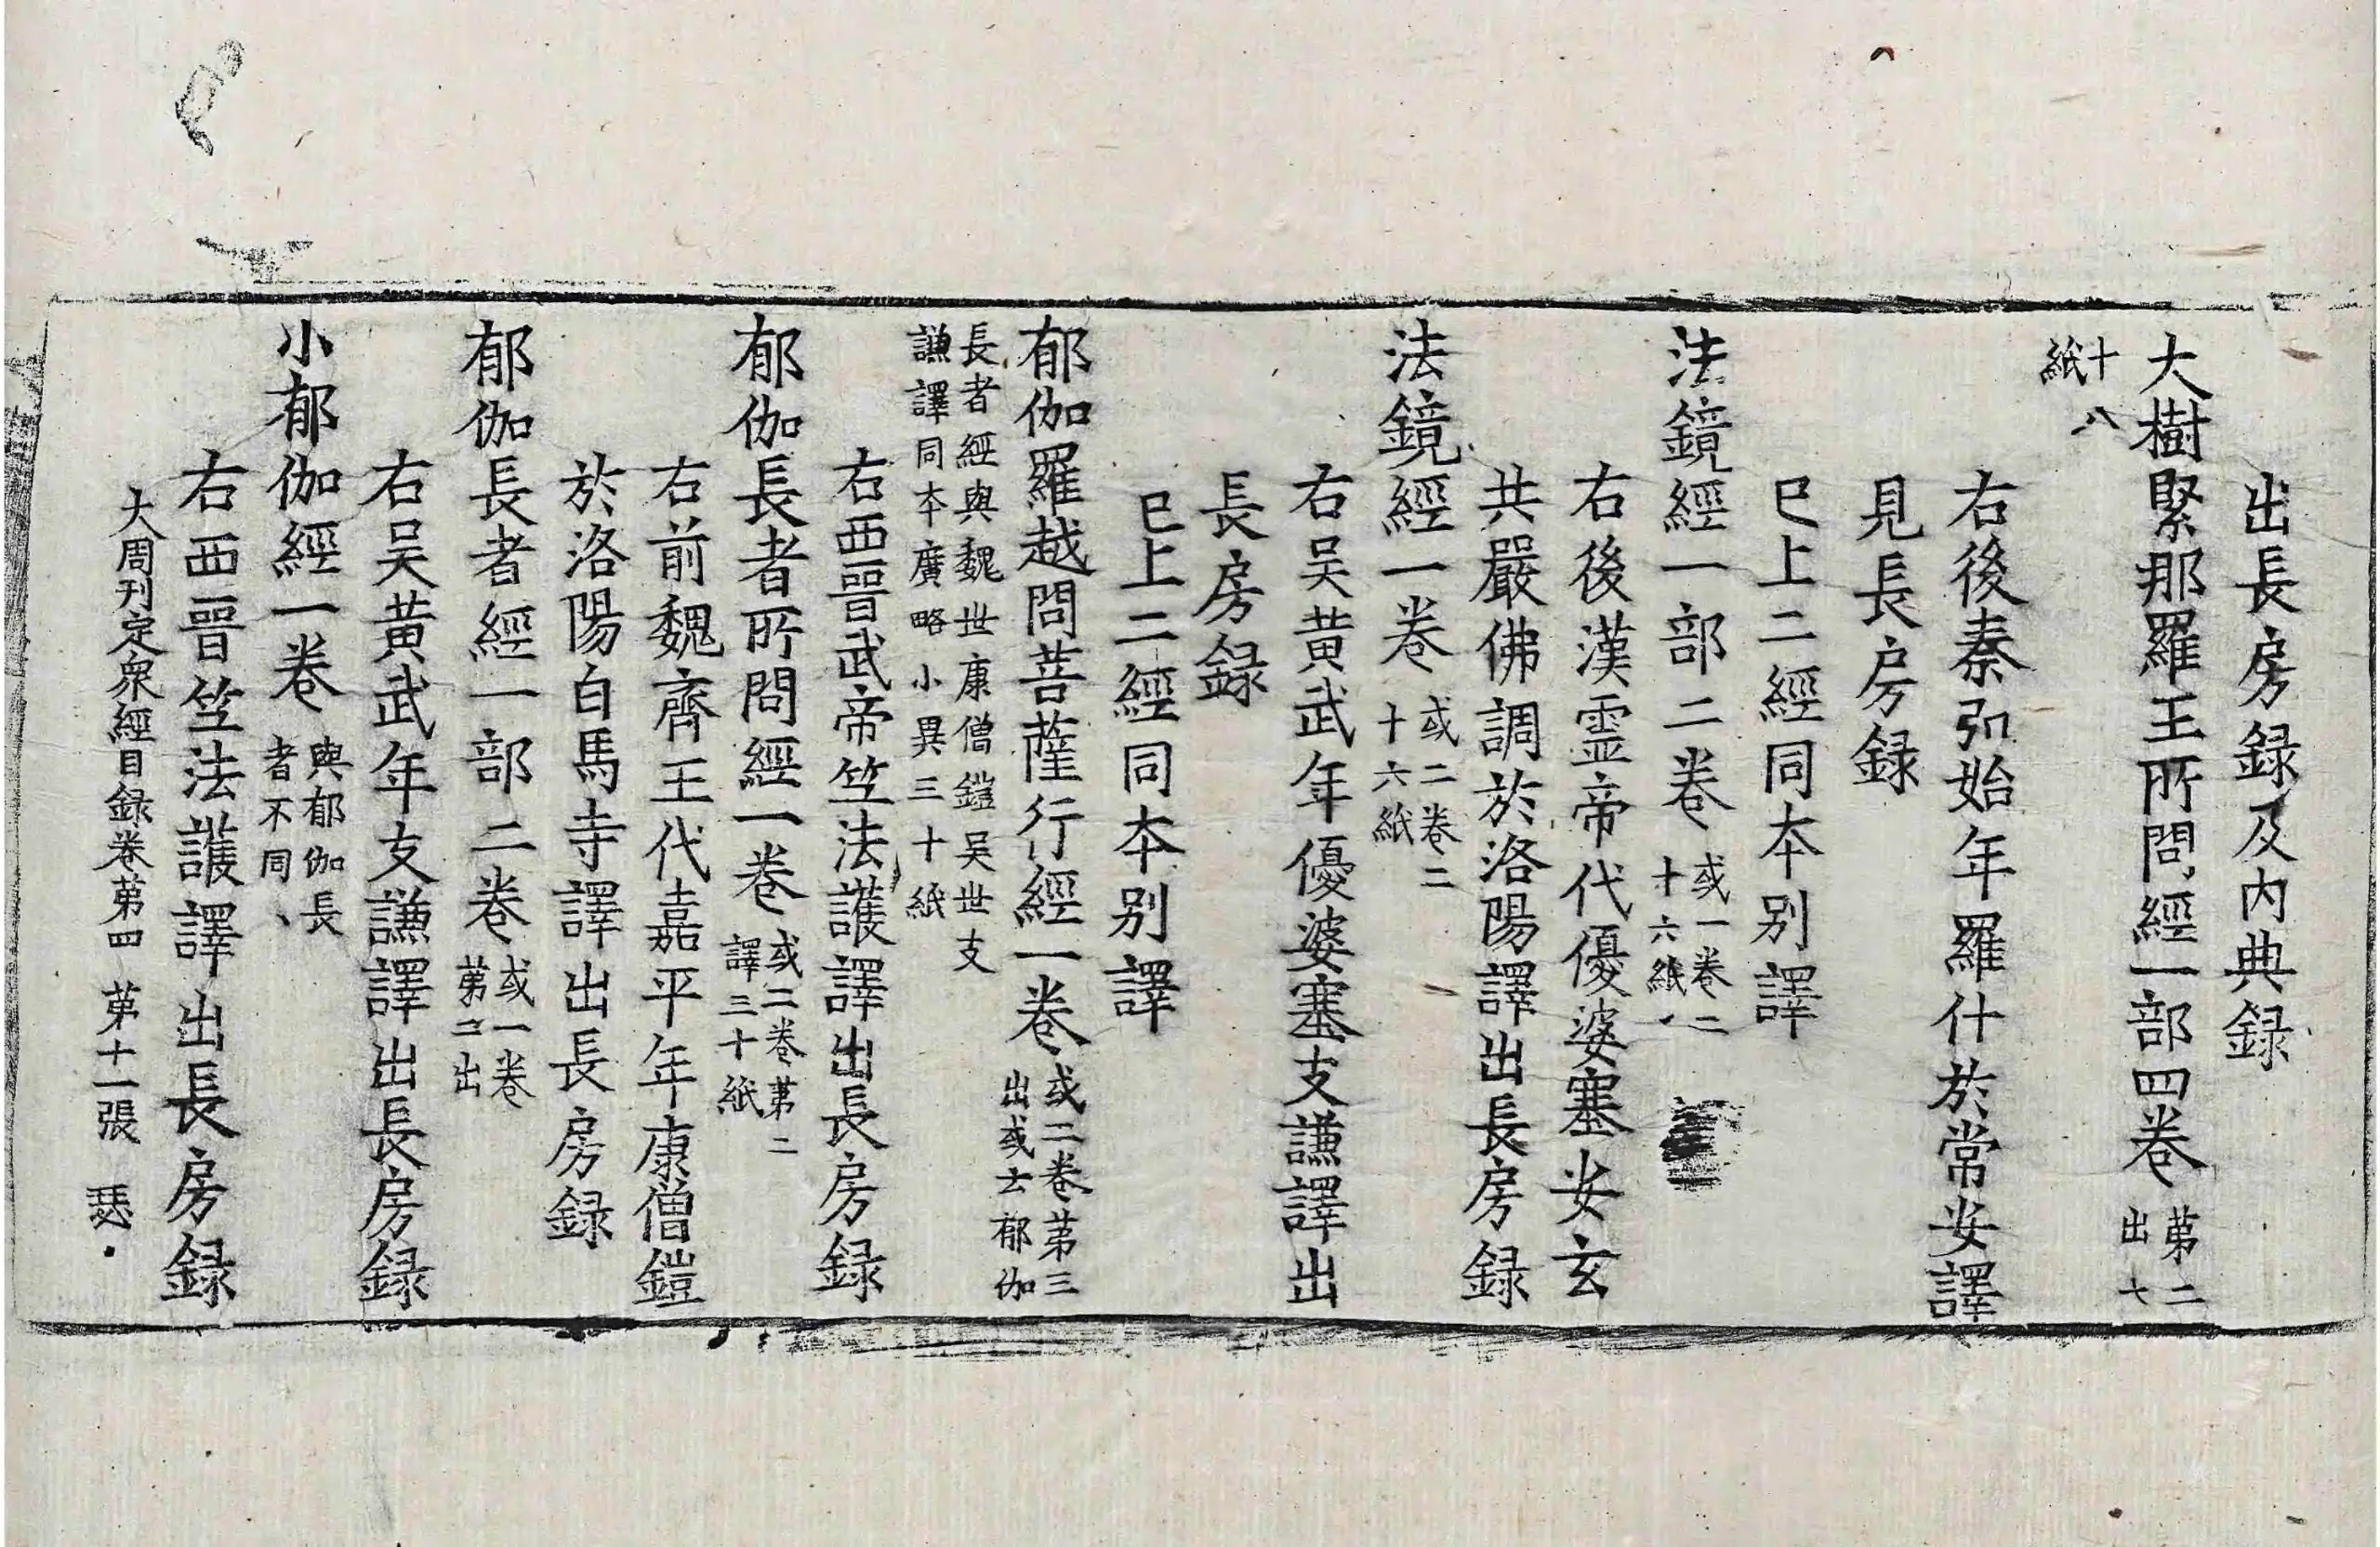 出長房録及内典録
大樹緊那羅王所問經一部四卷 第二出七
十八紙
右後秦弘始年羅什於常安譯
見長房録
已上二經同本别譯
法鏡經一部二卷 或一卷二十六紙
右後漢霊帝代優婆塞安玄
共嚴佛調於洛陽譯出長房録
法鏡經一卷 或二卷二十六紙
右吴黄武年優婆塞支謙譯出
長房録
已上二經同本别譯
郁伽羅越問菩薩行經一卷 或二卷苐三出或云郁伽
長者經與魏世康僧鎧吴世支
謙譯同本廣略小異三十紙
右西晉武帝竺法護譯出長房録
郁伽長者所問經一卷 或二卷苐二譯三十紙
右前魏齊王代嘉平年康僧鎧
於洛陽白馬寺譯出長房録
郁伽長者經一部二卷 或一卷苐二出
右吴黄武年支謙譯出長房録
小郁伽經一卷 與郁伽長者不同
右西晉竺法護譯出長房録
大周刊定衆經目録卷苐四 苐十一張